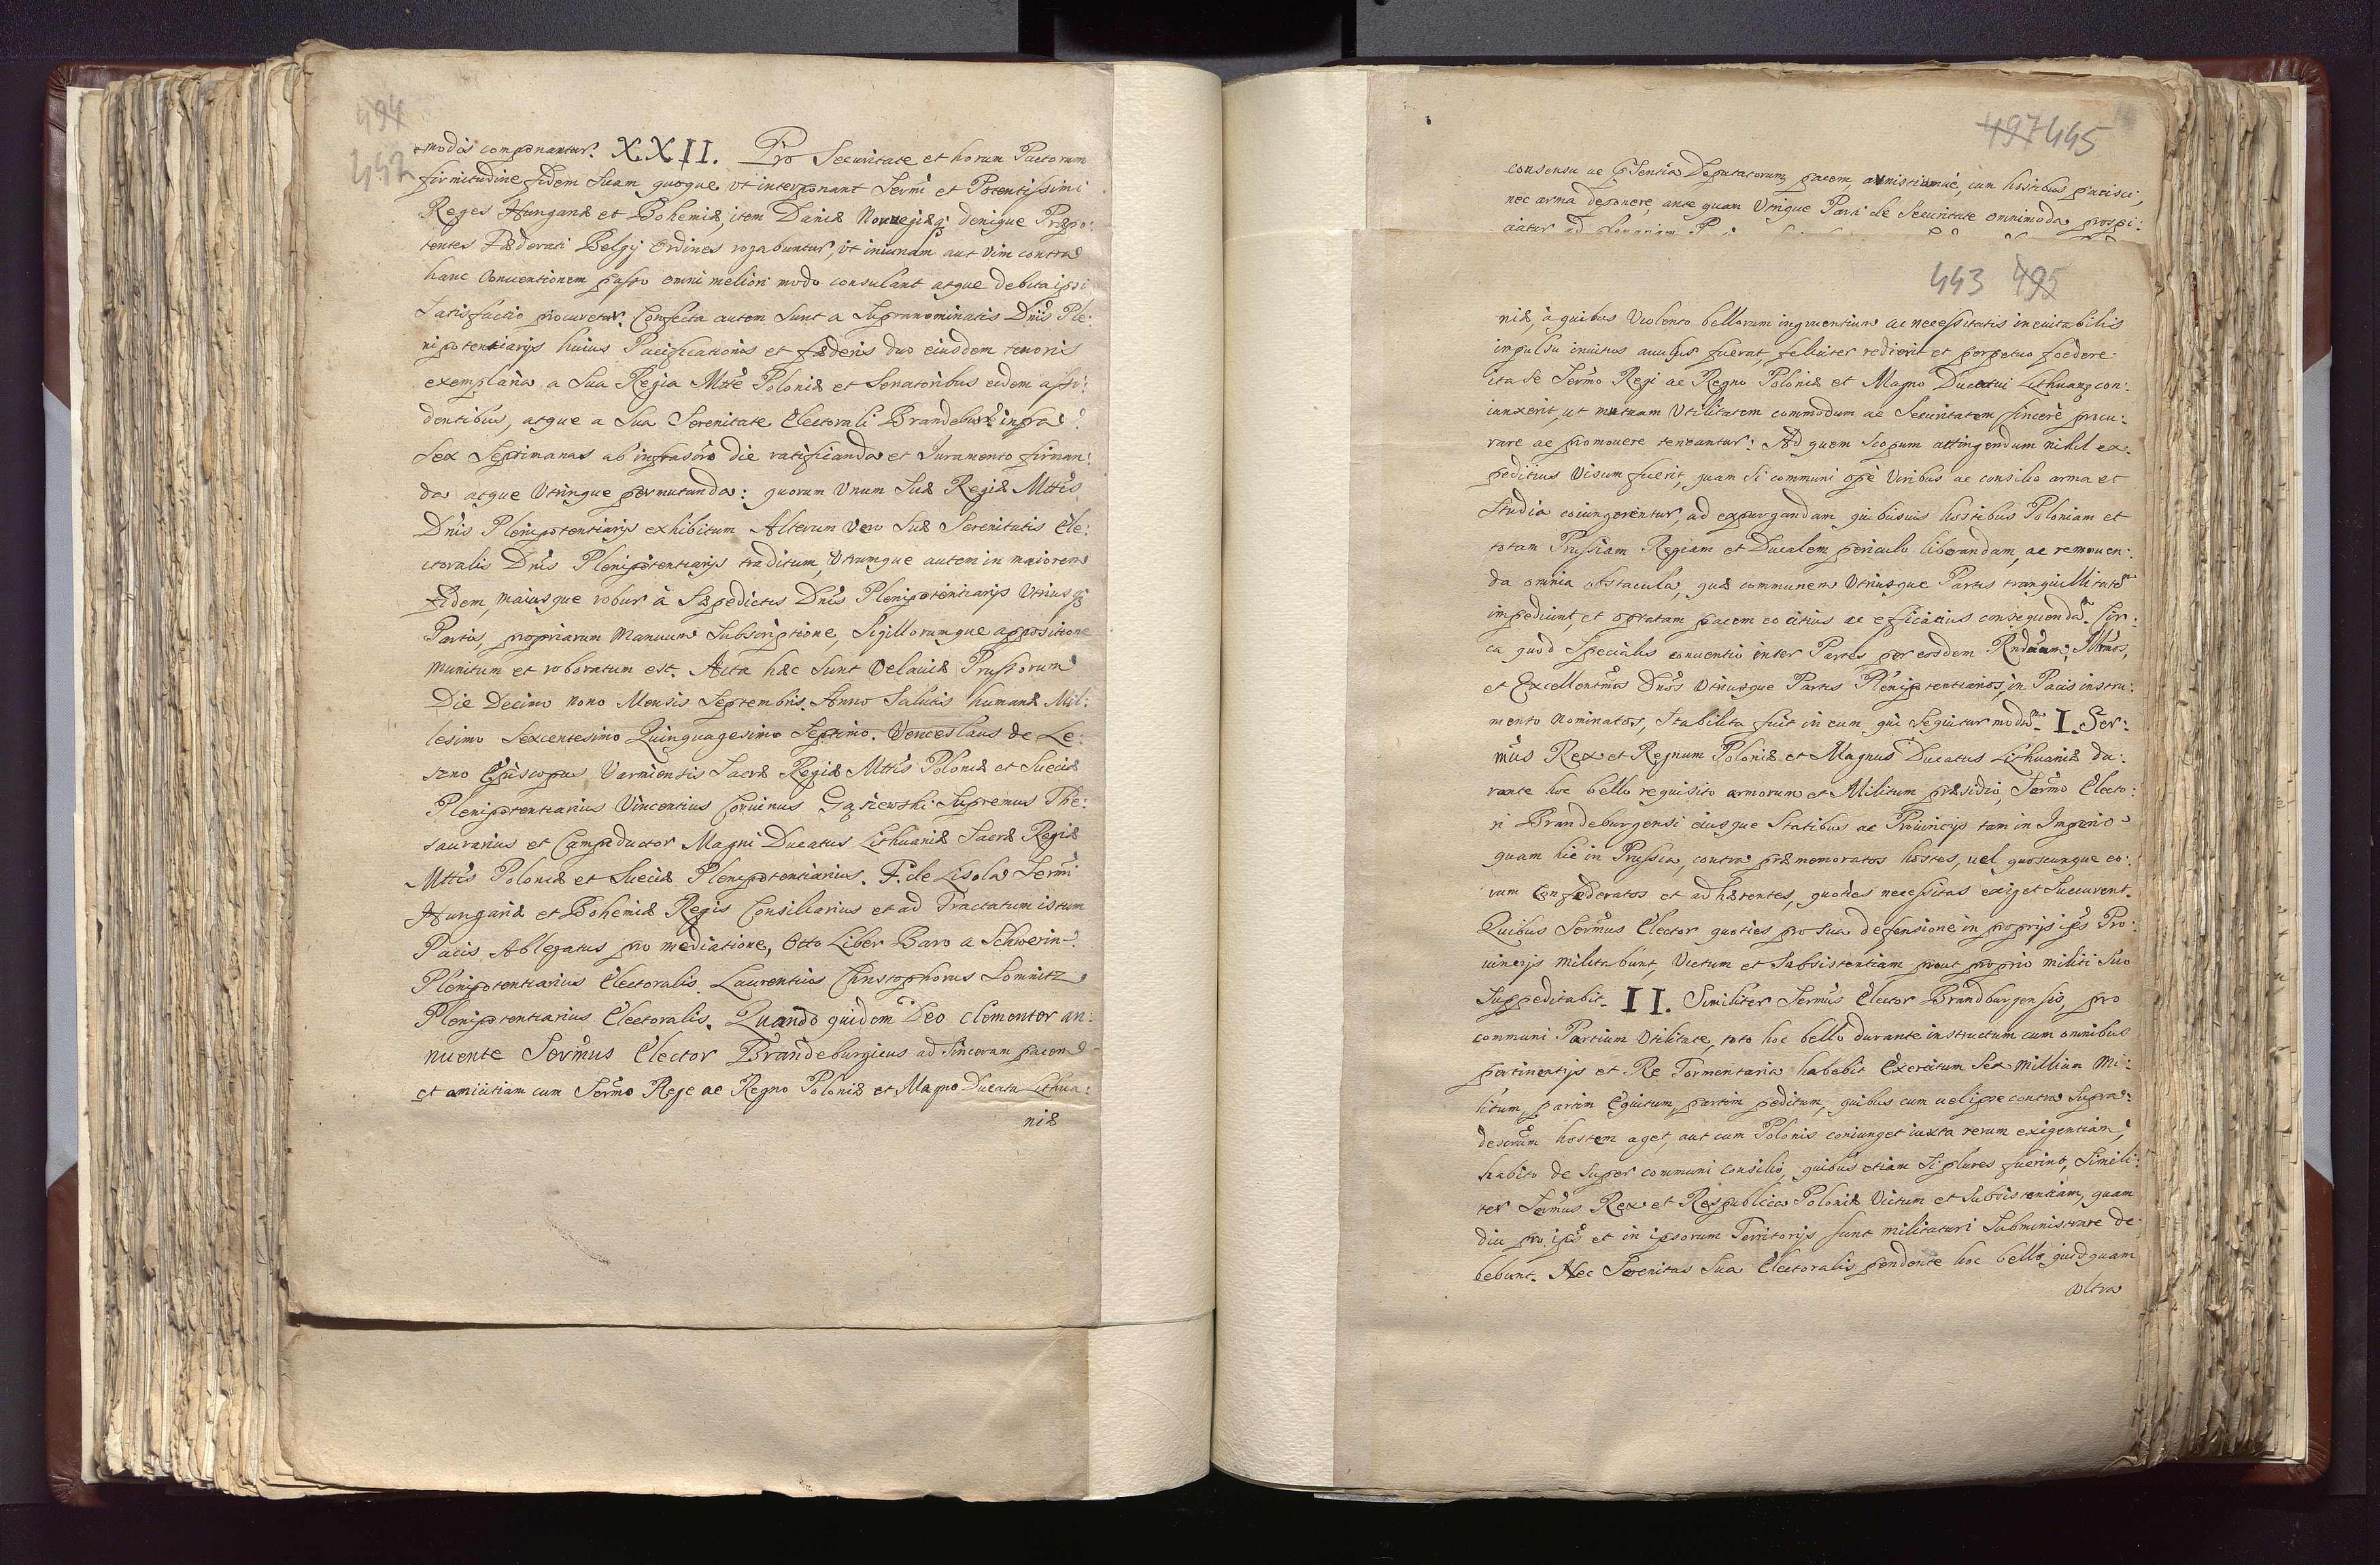 494
442
modis componantur. XXII. Pro Securitate et horum Pactorum
firmitudine fidem Suam quoque vt interponant Sermi et Potentissimi
Reges Hungariæ et Bohemiæ, item Daniæ Noruegiæq; denique Præpo:
tentes Fæderati Belgij Ordines rogabuntur, vt iniuriam aut vim contra
hanc Conuentionem passo omni meliori modo consulant atque debita ipsi
Satisfactio procuretur. Confecta autem sunt a Supranominatis Dnis Ple:
nipotentiarijs huius Pacificationis et fæderis duo eiusdem tenoris
exemplaria a Sua Regia Mtte Poloniæ et Senatoribus eidem assi:
dentibus, atque a Sua Serenitate Electorali Brandeburg: infra
Sex Septimanas ab infrascro die ratificanda et Juramento firman:
da atque Vtrinque permutanda: quorum Vnum Suæ Regiæ Mttis
Dnis Plenipotentiarijs exhibitum Alterum Vero Suæ Serenitatis Ele:
ctoralis Dnis Plenipotentiarijs traditum, Vtrumque autem in maiorem
Fidem, maiusque robur à Sæpedictis Dnis Plenipotentiarijs Vtriusq;
Partis, propriarum Manuum Subscriptione, Sigillorumque appositione
munitum et roboratum est. Acta hæc sunt Velauiæ Prussorum
Die Decimo nono Mensis Septembris. Anno Salutis humanæ Mil:
lesimo Sexcentesimo Quinquagesimo Septimo. Venceslaus de Le:
szno Episcopus Varmiensis Sacræ Regiæ Mttis Poloniæ et Sueciæ
Plenipotentiarius Vincentius Coruinus Gąsiewski Supremus The:
saurarius et Campiductor Magni Ducatus Lithuaniæ Sacræ Regiæ
Mttis Poloniæ et Sueciæ Plenipotentiarius. F. de Lisola Sermi
Hungariæ et Bohemiæ Regis Consiliarius et ad Tractatum istum
Pacis Ablegatus pro mediatione, Otto Liber Baro a Schwerin
Plenipotentiarius Electoralis. Laurentius Christophorus Somnitz
Plenipotentiarius Electoralis. Quando quidem Deo clementer an:
nuente Sermus Elector Brandeburgicus ad Sinceram pacem
et amicitiam cum Sermo Rege ac Regno Poloniæ et Magno Ducatu Lithua:
niæ
497 445
consensu ac pSentia Deputatorum, pacem, amnistiamue, cum hostibus pacisci,
nec arma deponere, ante quam Vtrique Parti de Securitate omnimoda prospi:
ciatur ad
443 495
niæ, à quibus Violento bellorum ingruentium ac necessitatis ineuitabilis
impulsu inuitus auulsus fuerat, feliciter redierit et perpetuo foedere
ita se Sermo Regi ac Regno Poloniæ et Magno Ducatui Lithuaniæ con:
iunxerit, ut mutuam Vtilitatem commodum ac Securitatem sincerè procu:
rare ac promouere teneantur: Ad quem Scopum attingendum nihil ex:
peditius Visum fuerit, quam Si communi opè Viribus ac consilio arma et
Studia coniungerentur, ad expurgandam quibusuis hostibus Poloniam et
totam Prussiam Regiam et Ducalem periculo liberandam, ac remouen:
da omnia obstacula, quæ communem Vtriusque Partis tranquillitatem
impediunt, et optatam pacem eo citius ac efficacius consequendam. Cir:
ca quod Specialis conuentio inter Partes per eosdem Rndum, Illmos,
et Excellentmos Dnos Vtriusque Partis Plenipotentiarios, in Pacis instru:
mento nominatos, Stabilita fuit in eum qui Sequitur modum. I. Ser:
mus Rex et Regnum Poloniæ et Magnus Ducatus Lithuaniæ du:
rante hoc bello requisito armorum et Militum præsidio, Sermo Electo:
ri Brandeburgensi eiusque Statibus ac Prouincijs tam in Imperio
quam hic in Prussia, contra præmemoratos hostes, uel quoscunque eo:
rum Confæderatos et adhærentes, quoties necessitas exiget Succurrent.
Quibus Sermus Elector quoties pro Sua defensione in proprijs ipsis Pro:
uincijs militabunt, Victum et Subsistentiam prout proprio militi Suo
Suppeditabit. II. Similiter Sermus Elector Brandburgensis, pro
communi Partium Vtilitate, toto hoc bello durante instructum cum omnibus
pertinentijs et Re Tormentaria habebit Exercitum Sex Millium Mi:
litum, partim Equitum, partim peditum, quibus cum uel ipse contra Supra:
descrum hostem aget, aut cum Polonis coniunget iuxta rerum exigentiam,
habito de Super communi Consilio, quibus etiam Si plures fuerint, Simili:
ter Sermus Rex et Respublica Poloniæ Victum et Subsistentiam, quam
diu pro ipsis et in ipsorum Territorijs sunt militaturi Subministrare de:
bebunt. Nec Serenitas Sua Electoralis pendente hoc bello quidquam
Vltra